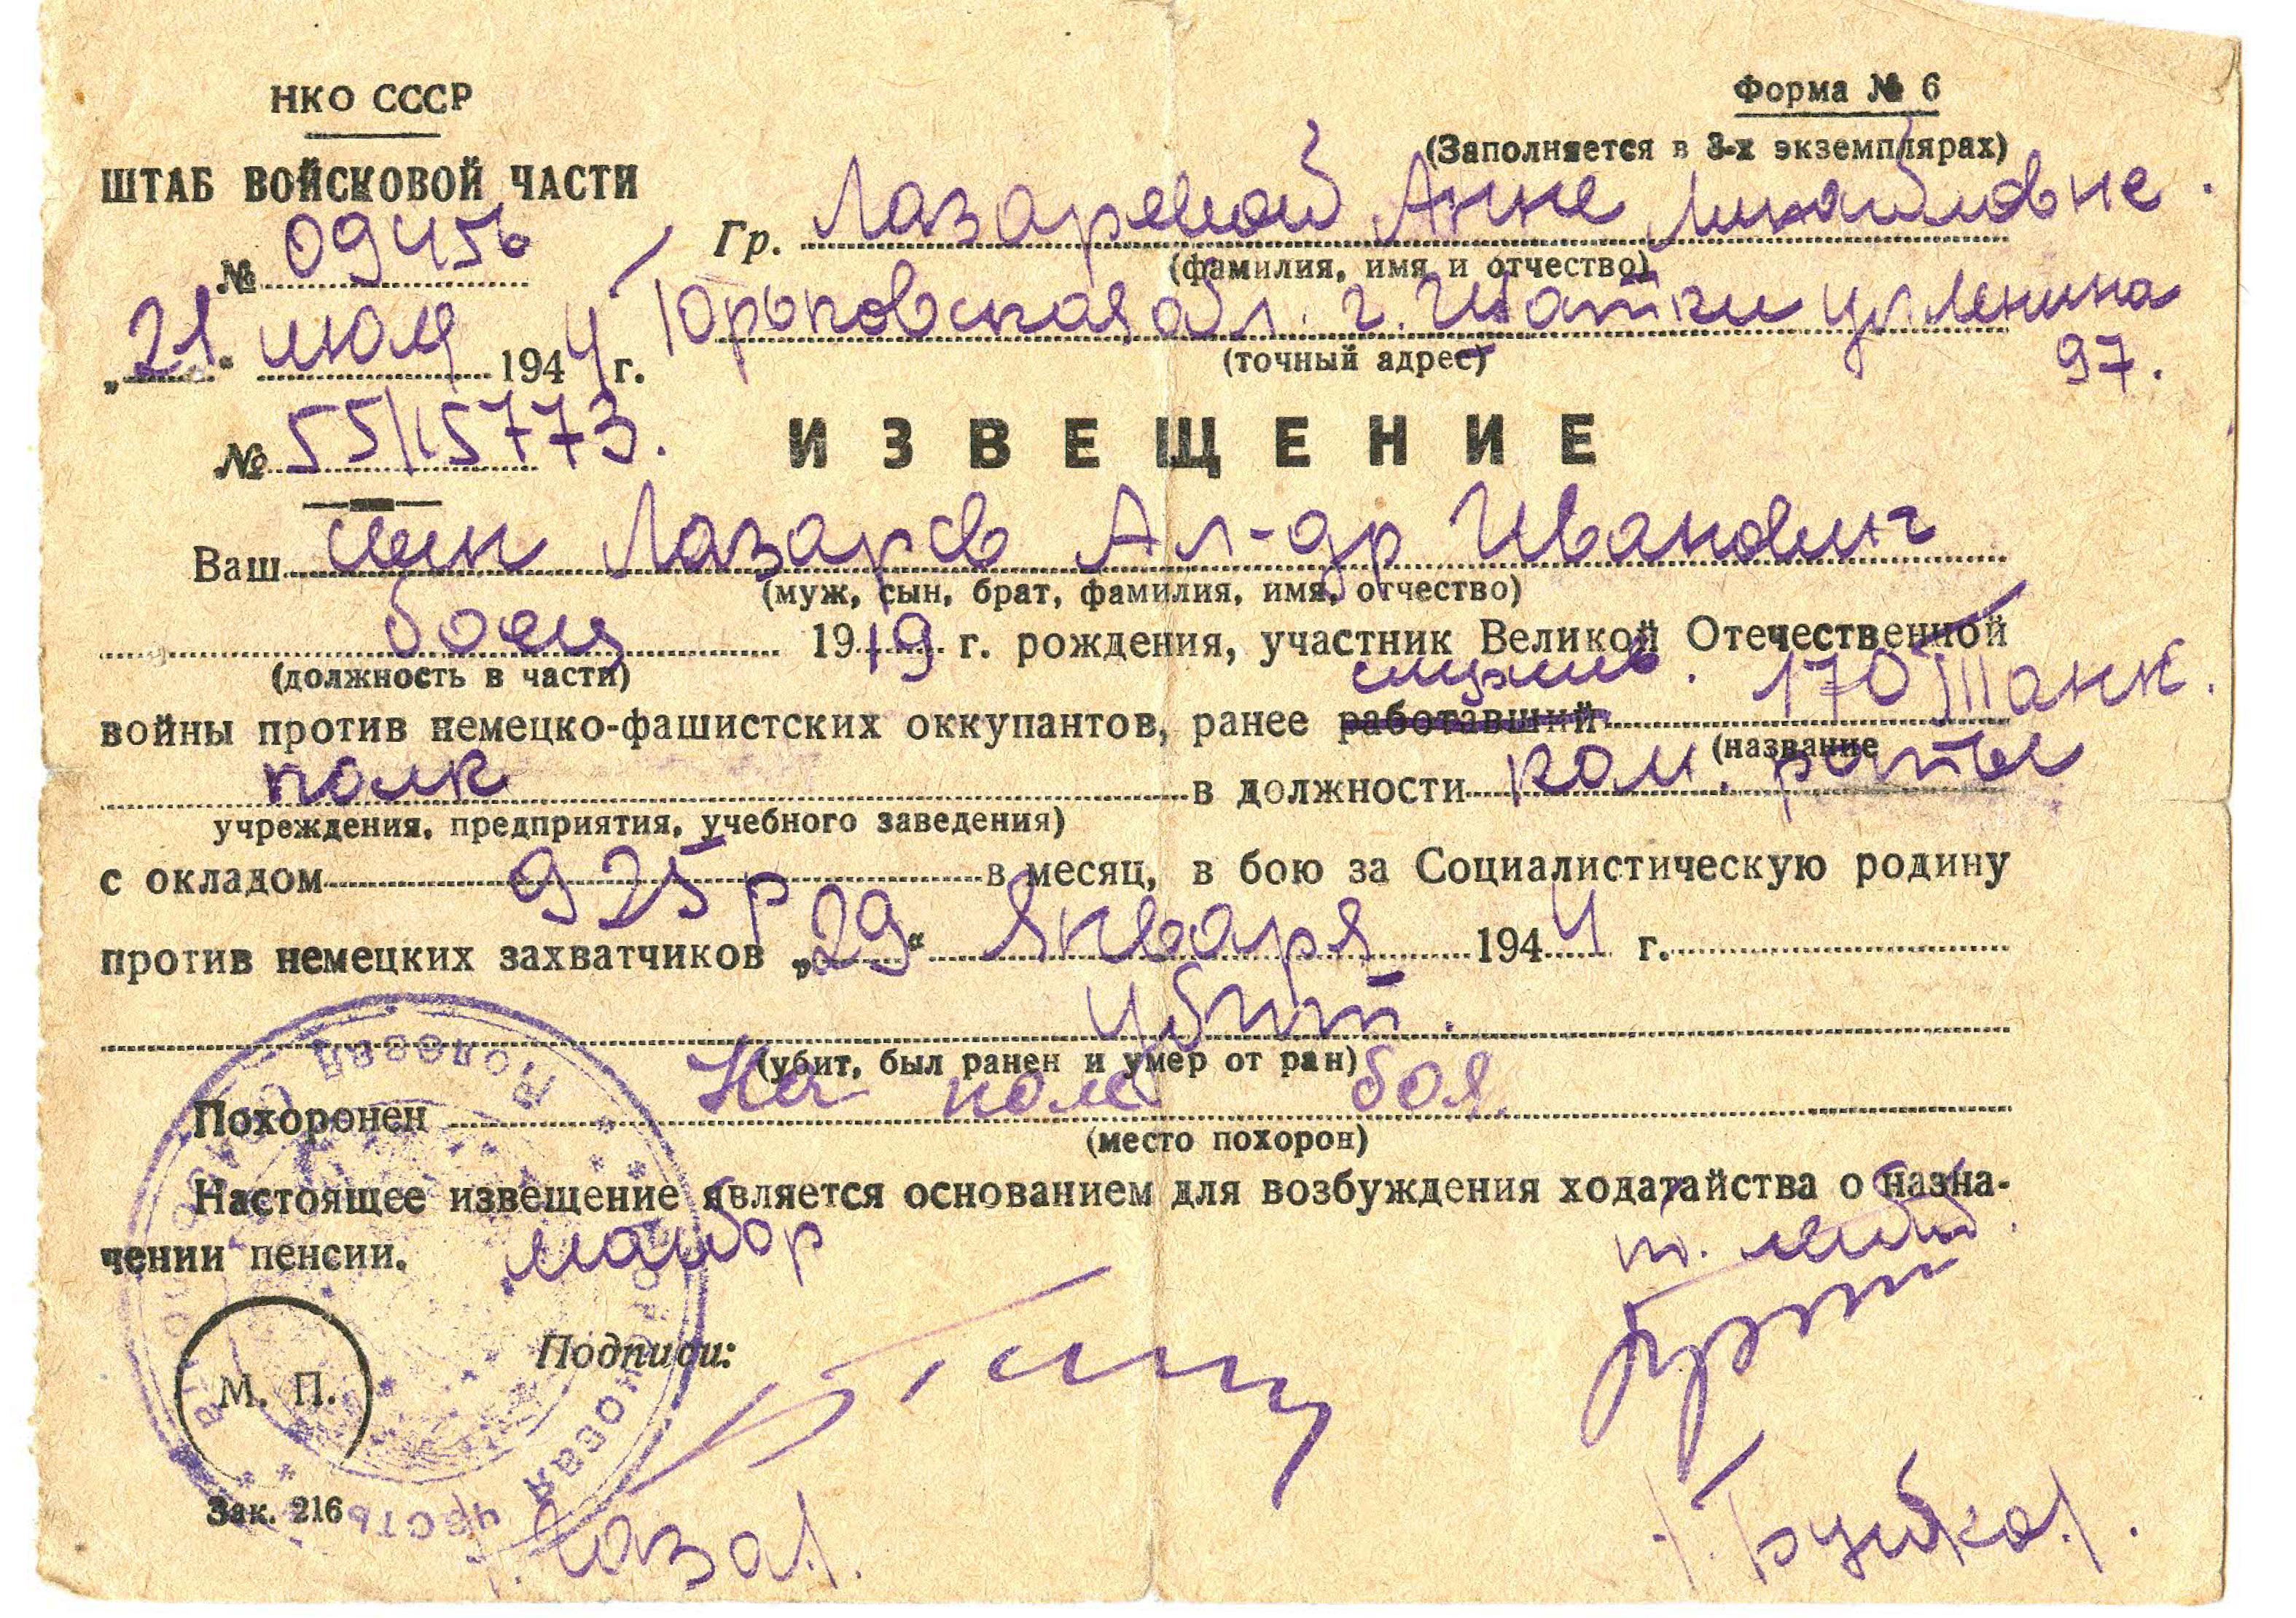 НКО СССР
Форма № 6
(Заполняется в 3-х экземплярах)
ШТАБ ВОЙСКОВОЙ ЧАСТИ
№ 09456
Гр. Лазаревой Анне Михайловне.
(фамилия, имя и отчество)
„21“ июля 1944 г.
Горьковская обл. г. Шатки ул Ленина
97.
(точный адрес)
№ 55/15773.
ИЗВЕЩЕНИЕ
Ваш сын Лазарев Ал-др Иванович
(муж, сын, брат, фамилия, имя, отчество)
боец 1919 г. рождения, участник Великой Отечественной
(должность в части)
служив. 170 Танк.
войны против немецко-фашистских оккупантов, ранее работавший
(название
полк в должности ком. роты
учреждения, предприятия, учебного заведения)
с окладом 925 р в месяц, в бою за Социалистическую родину
против немецких захватчиков „29“ Января 1944 г.
убит.
(убит, был ранен и умер от ран)
Похоронен На поле боя.
(место похорон)
Настоящее извещение является основанием для возбуждения ходатайства о назна-
чении пенсии.
майор
т. лейт.
Подписи:
М. П.
Зак. 216
Полевая
часть